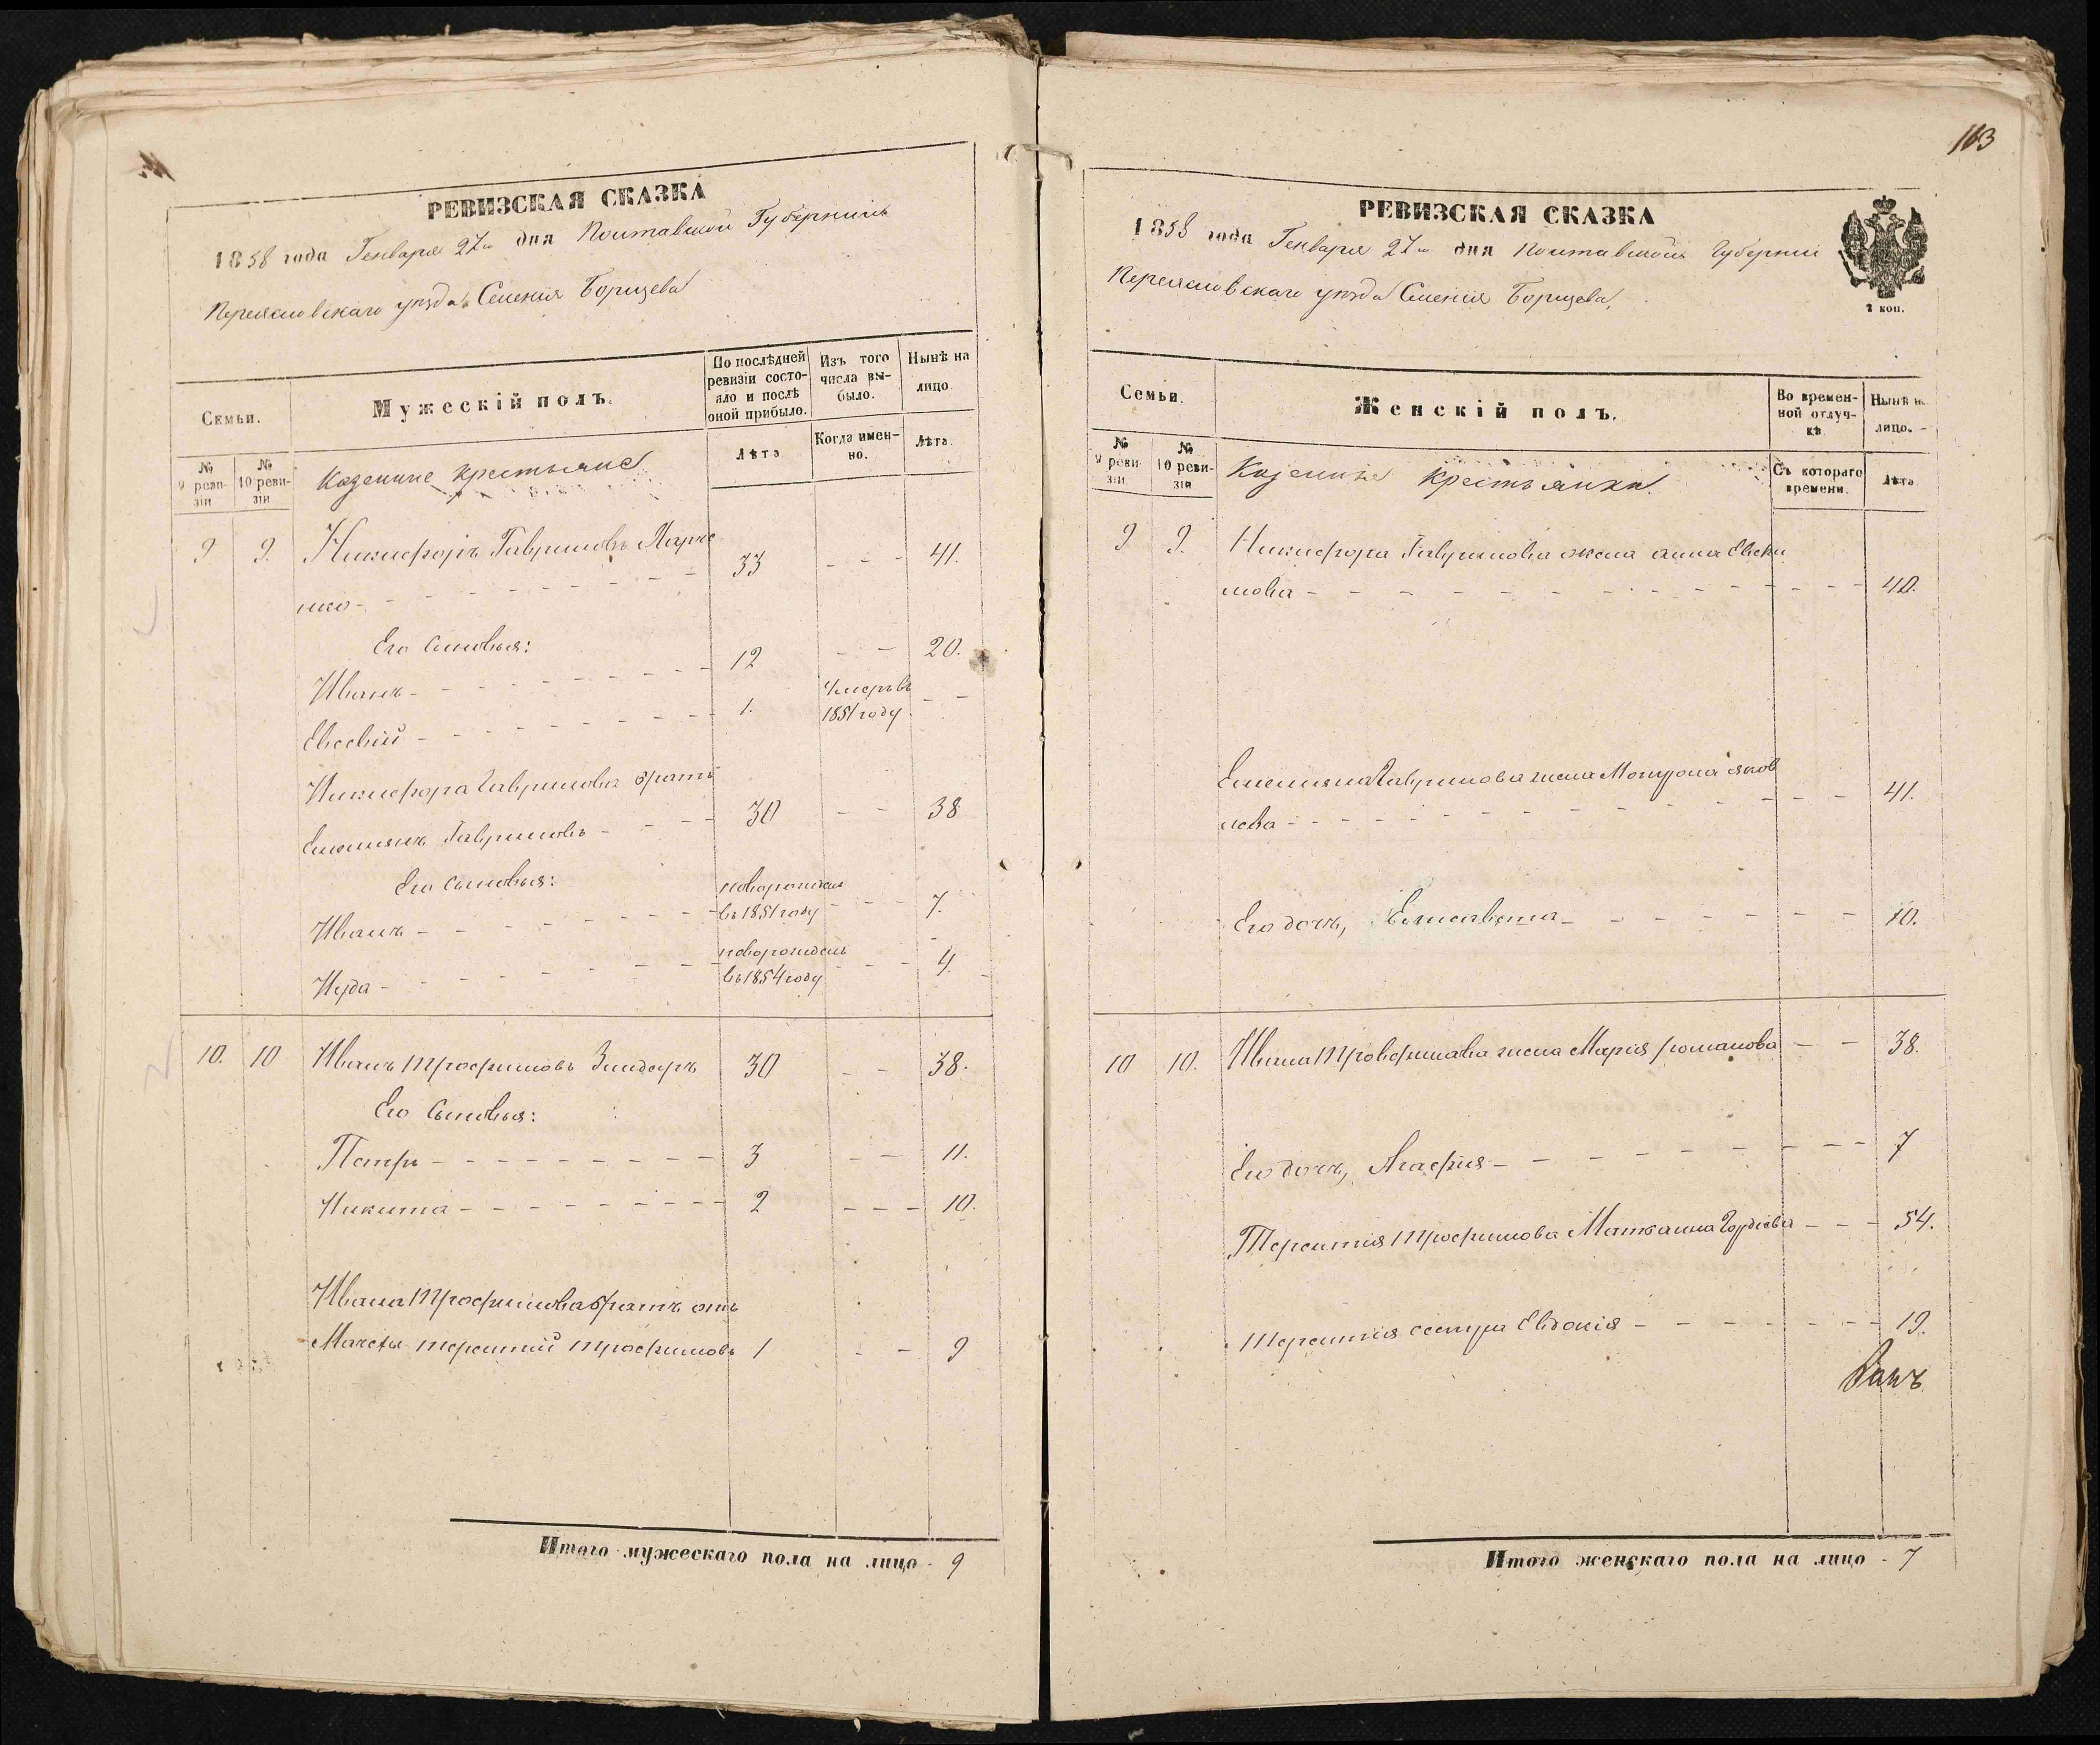 РЕВИЗСКАЯ СКАЗКА
1858 года Генваря 27го дня Полтавской Губерніи
Переяславскаго уѣзда Селенія Борщева
Семьи.
Мужескій полъ.
По послѣдней ревизіи состояло и послѣ оной прибыло.
Изъ того числа выбыло.
Нынѣ на лицо
Лѣта
Когда именно.
Лѣта
№ 9 ревизіи
№ 10 ревизіи
Казенные крестьяне
9 9. Никифоръ Гавриловъ Марче-
нко - 33 - - - 41.
Его сыновья:
Иванъ - 12 - - 20.
Евсевій - 1. Умеръ въ 1851 году - -
Никифора Гаврилова братъ
Емельянъ Гавриловъ - 30 - - 38
Его сыновья:
Иванъ - новорожден въ 1851 году - - - 7.
Иуда - новорожден въ 1854 году - - - 4.
10. 10 Иванъ Трофимовъ Зиндаръ 30 - - 38.
Его Сыновья:
Петръ - 3 - - 11.
Никита - 2 - - - 10.
Ивана Трофимова братъ отъ
Мачехи терентій трофимовъ 1 - - 9
Итого мужескаго пола на лицо - 9
113
РЕВИЗСКАЯ СКАЗКА
1858 года Генваря 27го дня Полтавской Губерніи
Переяславскаго уѣзда Селенія Борщева.
2 коп.
Семьи.
Женскій полъ.
Во временной отлучкѣ
Нынѣ на лицо.
№ 9 ревизіи
№ 10 ревизіи
Съ котораго времени
Лѣта
Казенные крестьянки.
9 9. Никифора Гаврилова жена анна Евсти
40.
Емельяна Гаврилова жена Мотрона яков
лева - 41.
Его дочь, Елисавета - 10.
10 10. Ивана Тровфимова жена Марія романова - - 38.
Его дочь, Агафія - 7
Терентія Трофимова Мать анна Гордіева - - - 54.
Терентія сестра Евдокія - 19.
Итого женскаго пола на лицо - 7